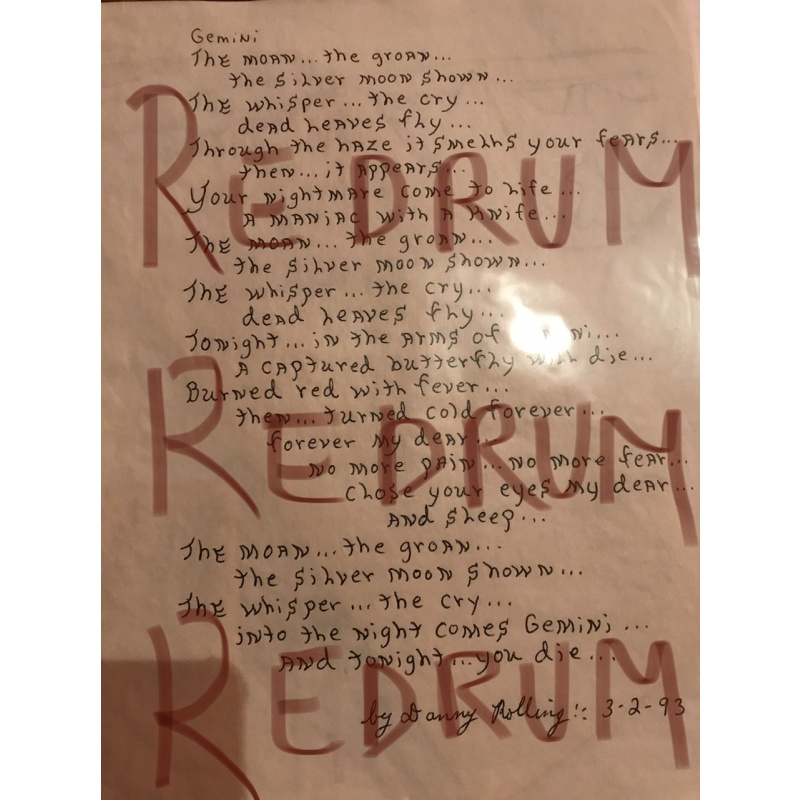 Gemini
The MOAN... the groAN...
the Silver MOON Shown...
The whisper... the cry...
deAd leAves fly...
Through the hAze it Smells your feArs...
then... it AppeArs...
Your nightmAre come to life...
A MANiAC with A Knife...
REDRUM
The MOAN... the groAN...
the Silver MOON Shown...
The whisper... the cry...
deAd leAves fly...
Tonight... in the ARMS of
A cAptured butterfly will die...
Burned red with fever...
then... turned cold forever...
REDRUM
forever My deAr...
NO More pAiN... NO More feAr...
Close your eyes My deAr...
ANd Sleep...
The MOAN... the groAN...
the Silver MOON Shown...
The whisper... the cry...
into the Night comes Gemini...
ANd tonight... you die...
REDRUM
by Danny Rolling!: 3-2-93